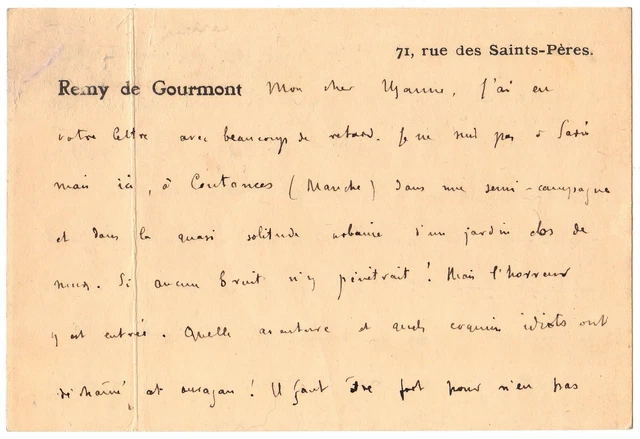 71, rue des Saints-Pères.
Remy de Gourmont Mon cher Uzanne, j'ai eu
votre lettre avec beaucoup de retard. Je ne suis pas à Paris
mais ici, à Coutances (Manche) dans une semi-campagne
et dans la quasi solitude urbaine d'un jardin clos de
murs. Si aucun bruit n'y pénétrait ! Mais l'horreur
y est entrée. Quelle aventure et quels coquins idiots ont
déchaîné cet ouragan ! Il faut être fort pour n'en pas